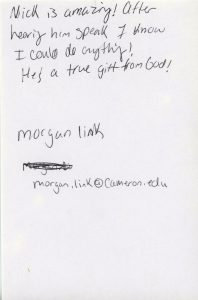 Nick is amazing! After
hearing him speak I know
I could do anything!
He's a true gift from God!
morgan link
morgan.link@cameron.edu